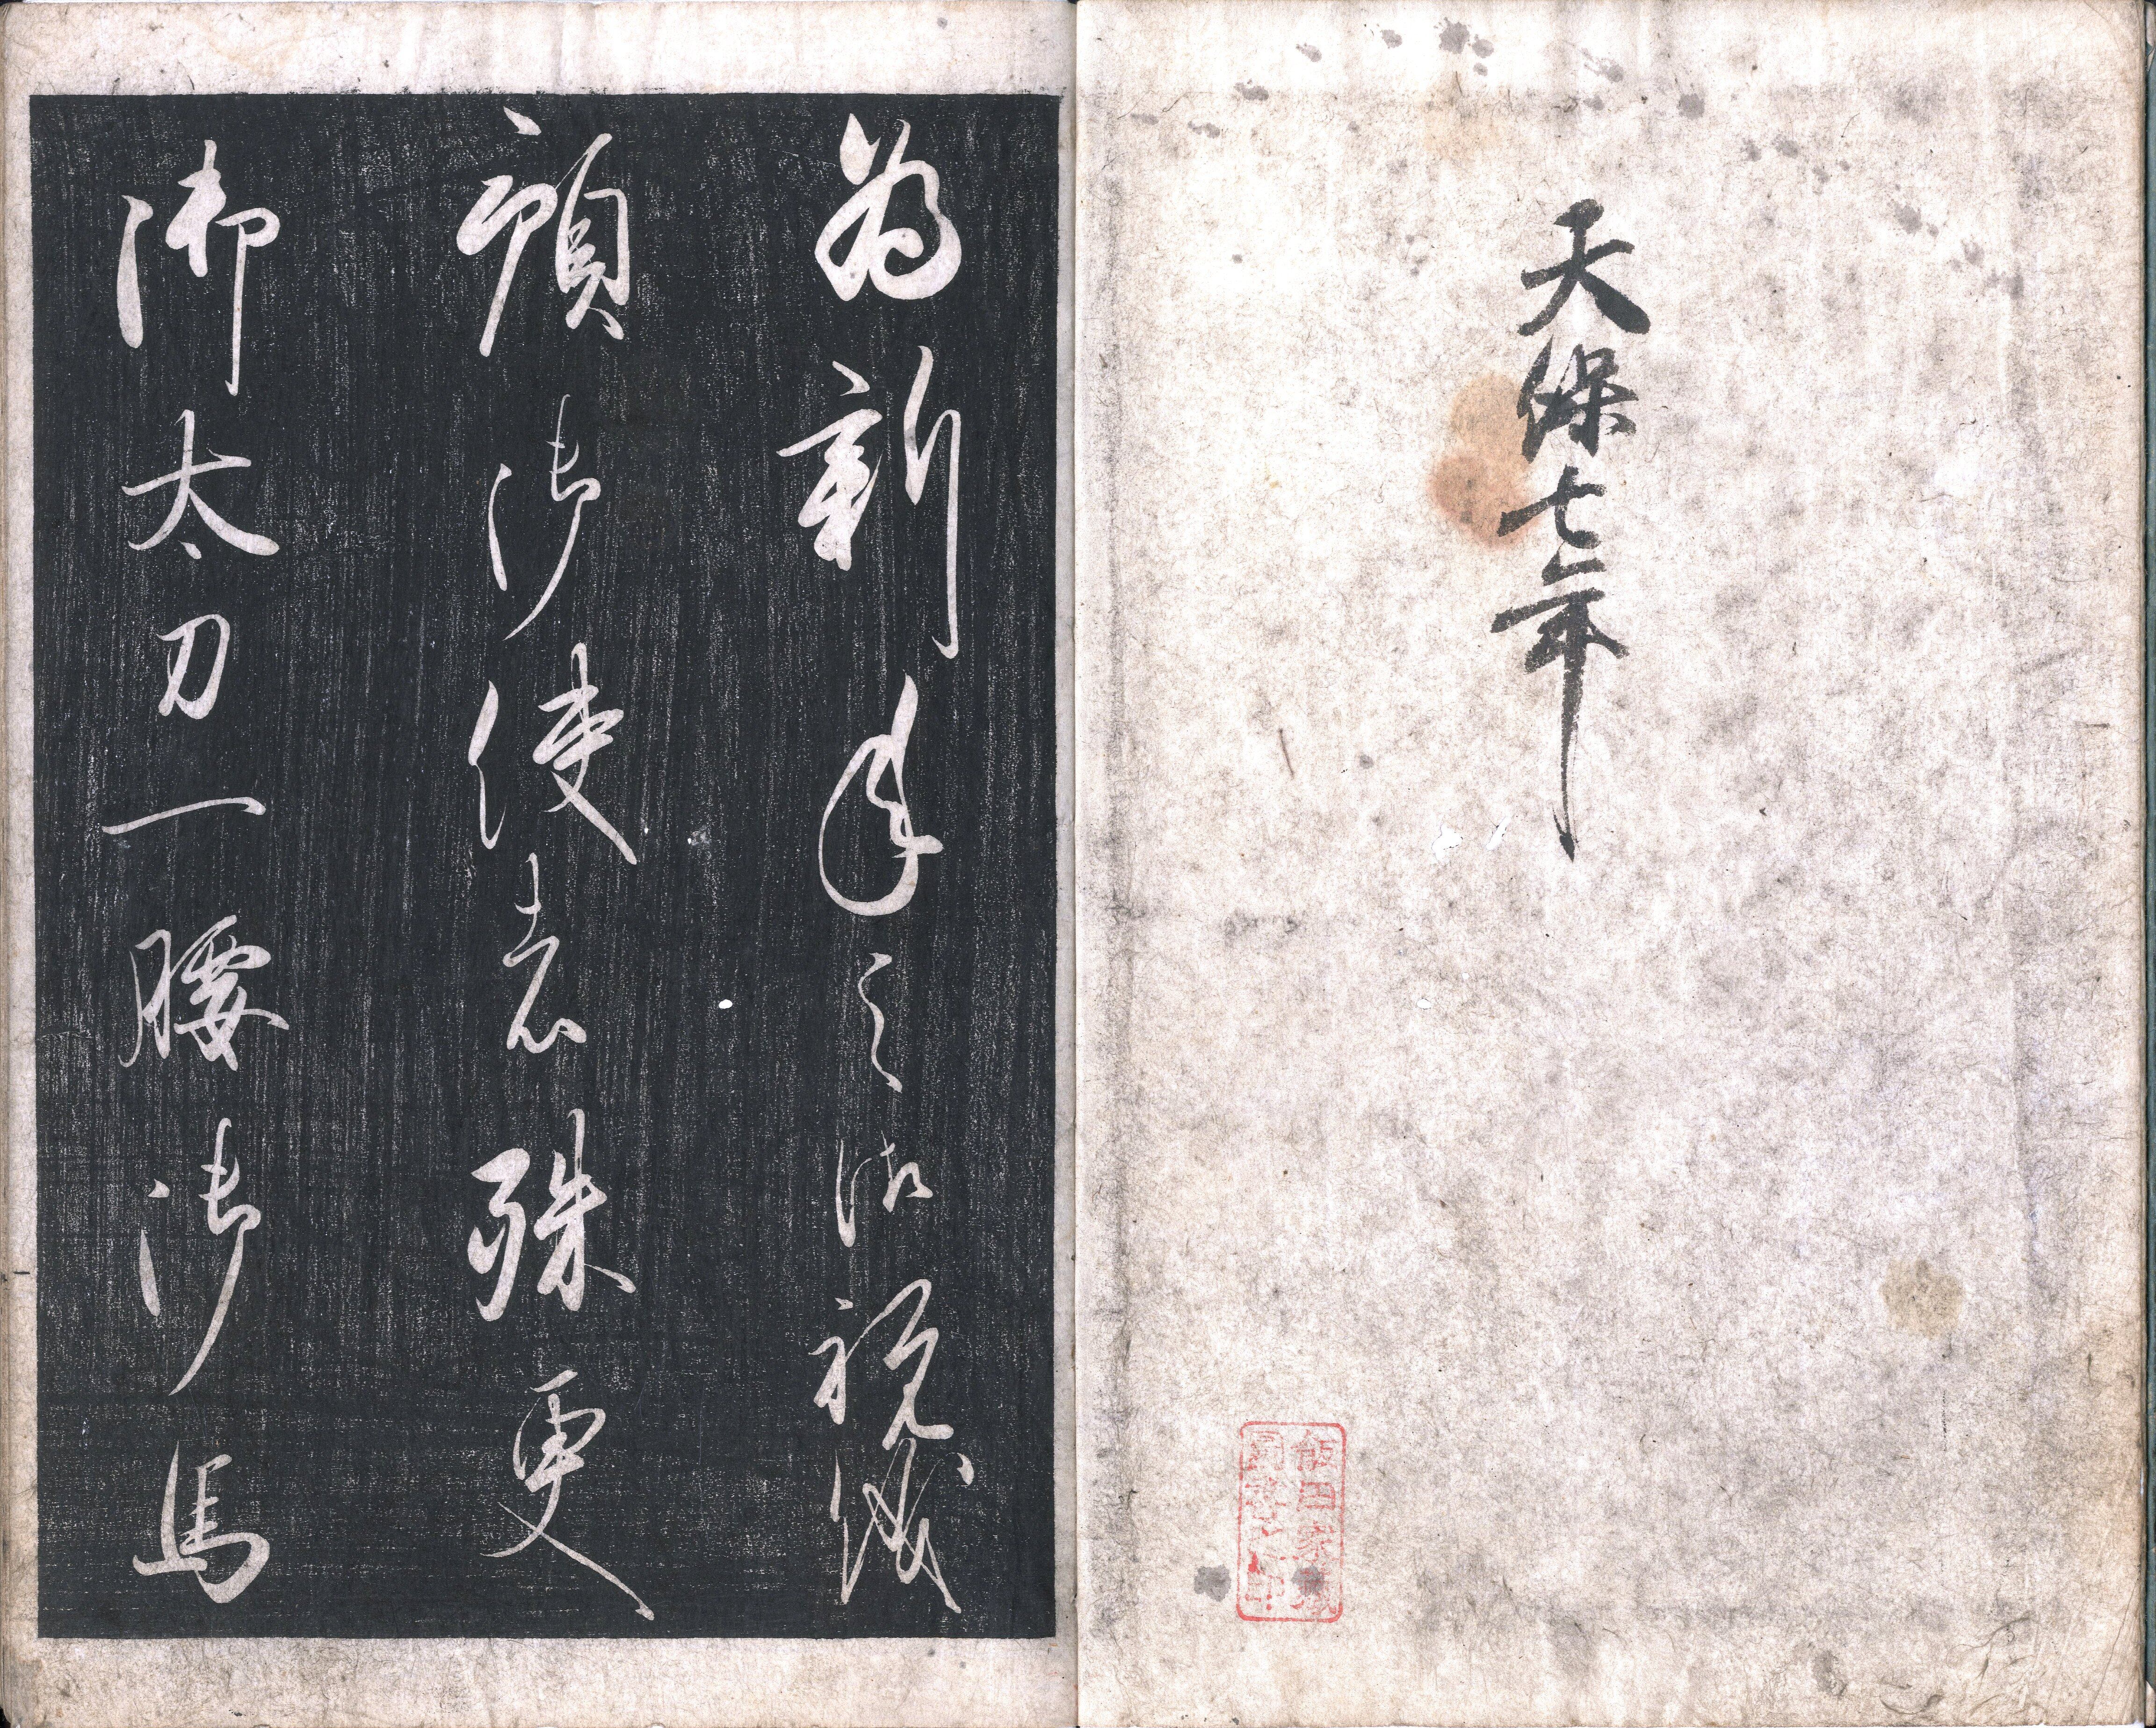 天保七年
為新年之御祝儀
預御使者殊更
御太刀一腰御馬